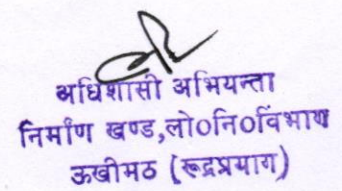 अधिशासी अभियन्ता
निर्माण खण्ड,लो०नि०विभाग
ऊखीमठ (रूद्रप्रयाग)